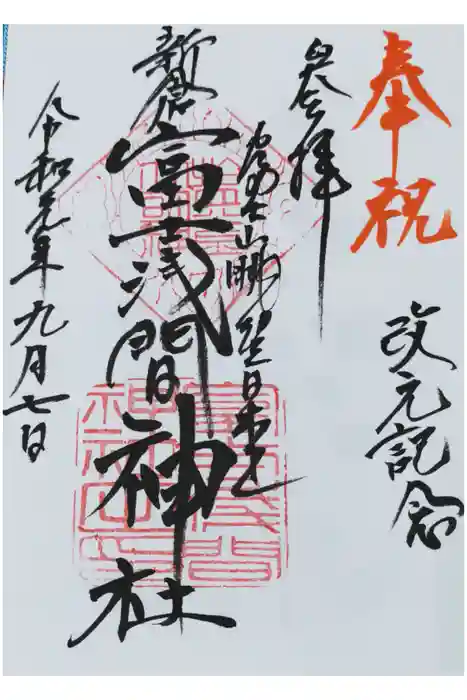 奉祝
改元記念
奉拝
富士山眺望日本一
新倉富士浅間神社
令和元年九月七日